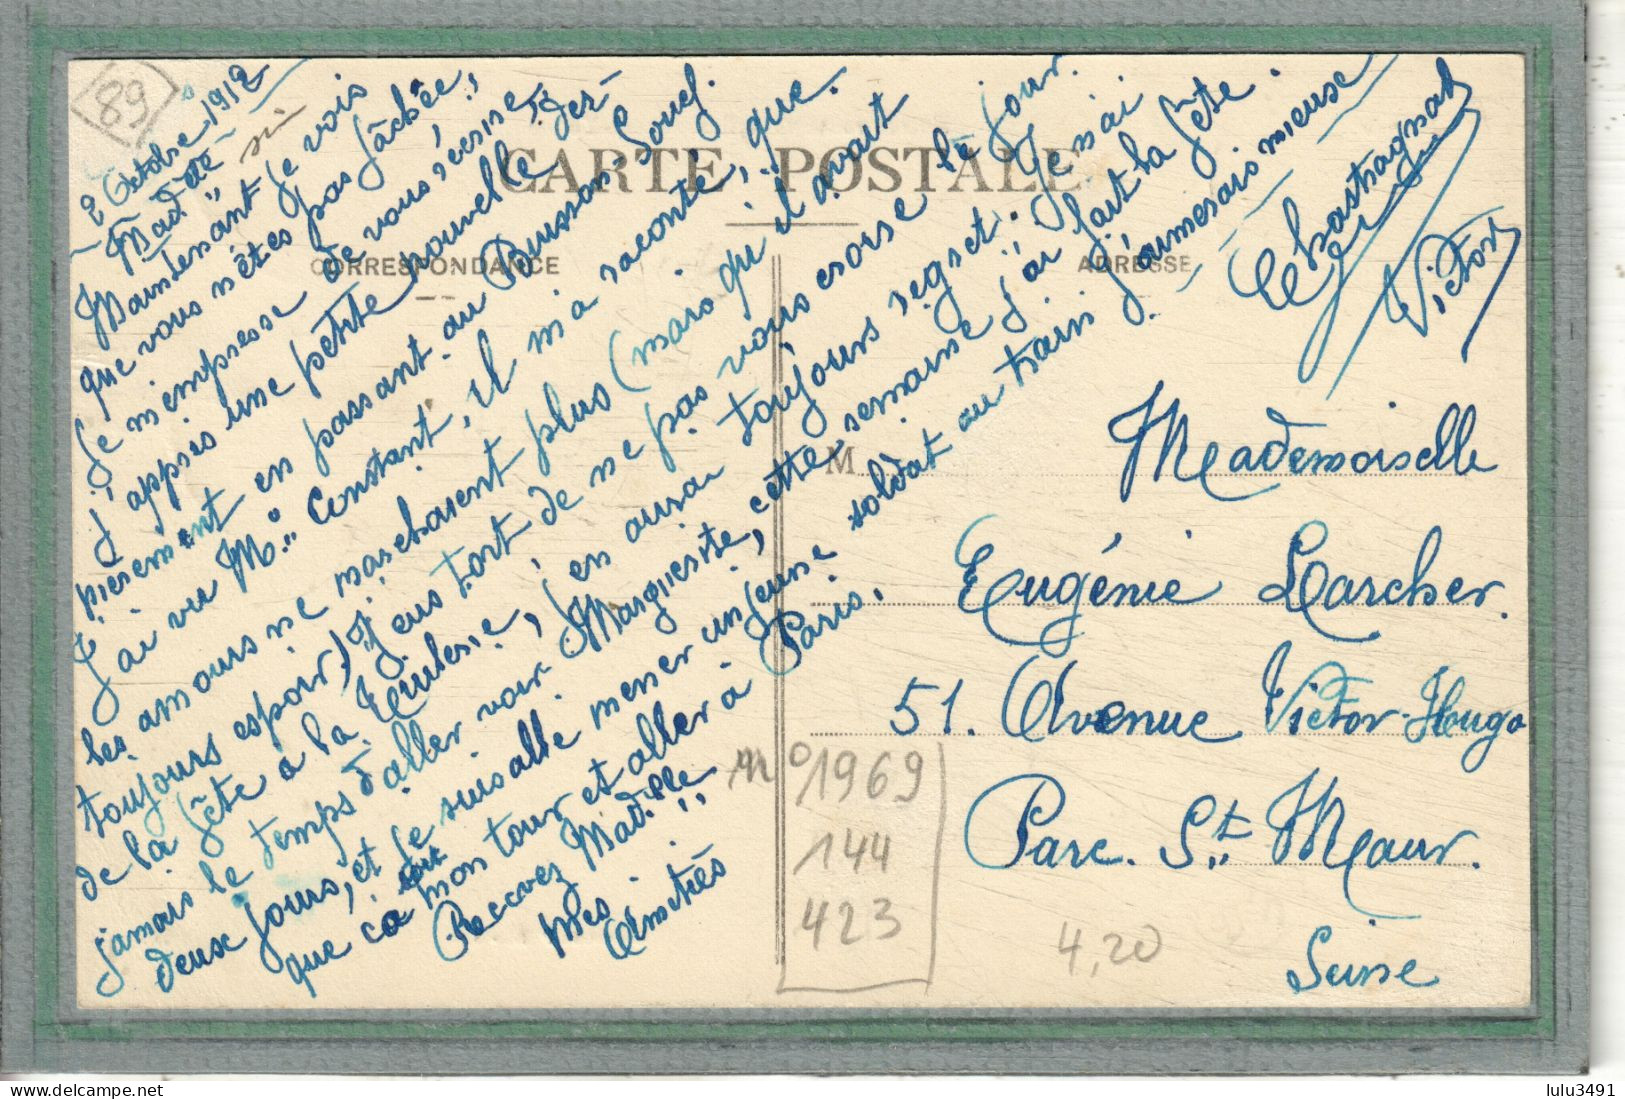 89
2 Octobre 1912
Mad lle
Maintenant si je vois
que vous n'êtes pas fâchée,
Je m'empresse de vous récrire,
J'appris une petite nouvelle der-
nièrement en passant au Buisson Souef.
J'ai vu Mr Constant, il m'a raconté, que.
les amours ne marchaient plus (mais qu'il avait
toujours espoir) J'eus tort de ne pas vous écrire le jour
de la fête à la, j'en aurai toujours regret. Je n'ai
jamais le temps d'aller voir Marguerite, cette semaine j'ai fait la fête.
deux jours, et je suis allé mener un jeune soldat au train j'aimerais mieux
que ça soit mon tour et aller à Paris.
Recevez Mad lle
mes
Amitiés
Chastragnat
Victor
CARTE POSTALE
CORRESPONDANCE
ADRESSE
M
Meademoiselle
Eugénie Larcher.
51. Avenue Victor-Hougo
Parc. St Meaur.
Seine
n° 1969
144
423
4,20
lulu3491